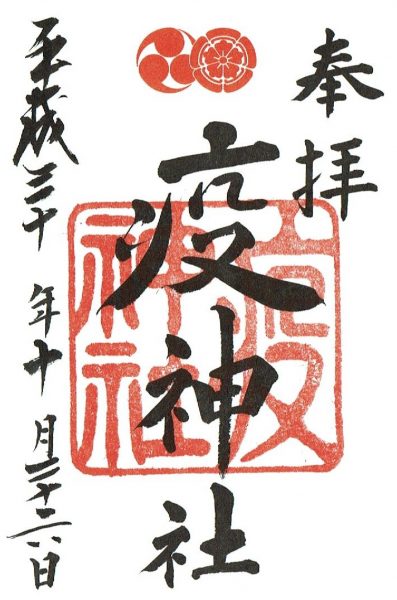 奉拝
疫神社
平成三十年十月二十六日
疫
神社